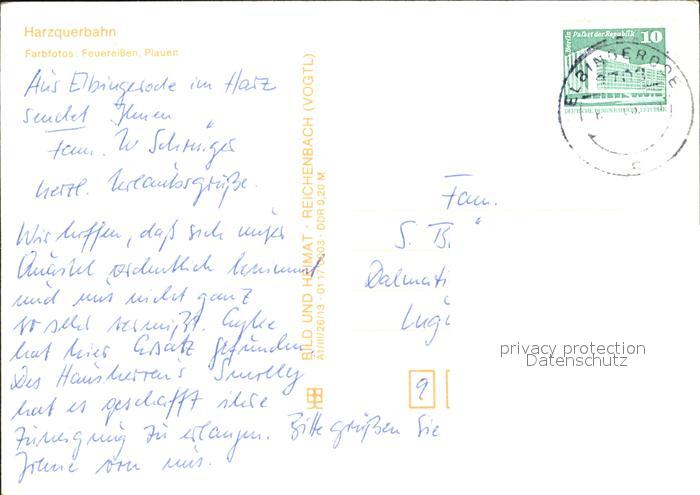 Harzquerbahn
Farbfotos: Feuereißen, Plauen
Aus Elbingerode im Harz
sendet Ihnen
Fam. W
herzl. Urlaubsgrüße.
Wir hoffen, daß sich unser
ordentlich benimmt
und uns nicht ganz
so sehr vermißt.
hat hier Ersatz gefunden
Des Hausherren's
hat es geschafft
Zuneigung zu erlangen. Bitte grüßen Sie
von uns.
BILD UND HEIMAT · REICHENBACH (VOGTL)
A1/III/26/13 · 01 17 0203 · DDR 0,20 M
Berlin Palast der Republik 10
DEUTSCHE DEMOKRATISCHE REPUBLIK
ELBINGERODE
Fam.
S. B.
Dalmati
9
privacy protection
Datenschutz